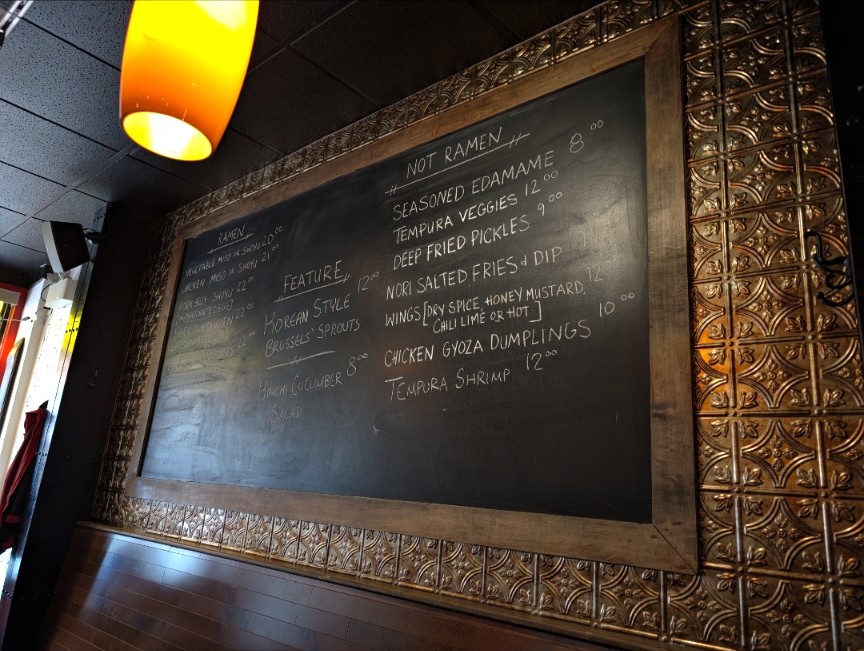 RAMEN
VEGETABLE MISO OR SHOYU 20.00
CHICKEN MISO OR SHOYU 21.00
PORK BELLY SHOYU 22.00
FEATURE
KOREAN STYLE 12.00
BRUSSELS' SPROUTS
KIMCHI CUCUMBER 8.00
SALAD
NOT RAMEN
SEASONED EDAMAME 8.00
TEMPURA VEGGIES 12.00
DEEP FRIED PICKLES 9.00
NORI SALTED FRIES + DIP
WINGS [DRY SPICE, HONEY MUSTARD, 12
CHILI LIME OR HOT]
CHICKEN GYOZA DUMPLINGS 10.00
TEMPURA SHRIMP 12.00